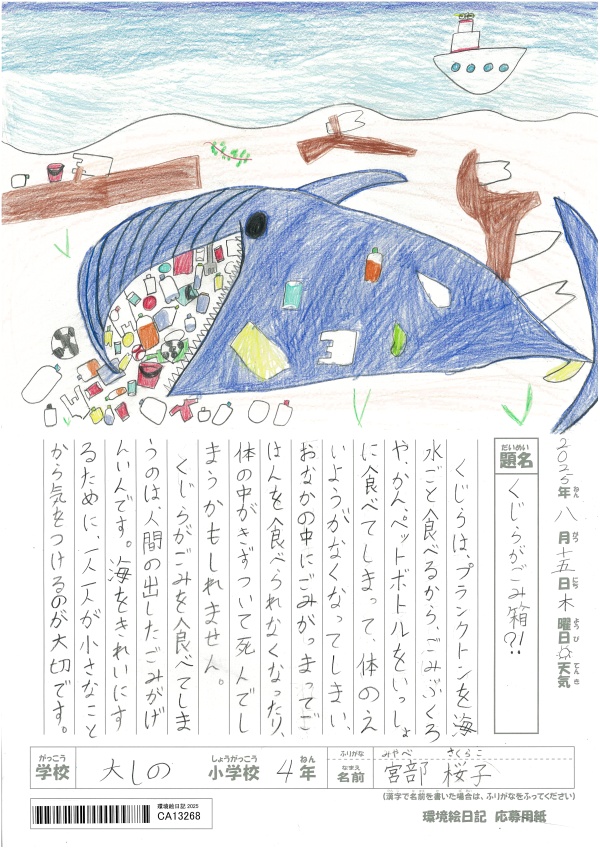 2025年ねん 八月がつ 十五日にち 木曜日ようび 天気てんき
題名だいめい
くじらがごみ箱?!
くじらは、プランクトンを海
水ごと食べるから、ごみぶくろ
や、かん、ペットボトルをいっしょ
に食べてしまって、体のえ
いようがなくなってしまい、
おなかの中にごみがつまってご
はんを食べられなくなったり、
体の中がきずついて死んでし
まうかもしれません。
くじらがごみを食べてしま
うのは、人間の出したごみがげ
んいんです。海をきれいにす
るために、一人一人が小さなこと
から気をつけるのが大切です。
がっこう しょうがっこう ねん ふりがな みやべ さくらこ
学校 大しの 小学校 4年 なまえ 名前 宮部 桜子
(漢字で名前を書いた場合は、ふりがなをふってください)
環境絵日記 2025
CA13268
環境絵日記 応募用紙